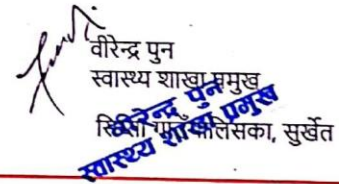 वीरेन्द्र पुन
स्वास्थ्य शाखा प्रमुख
गाउँपालिसका, सुर्खेत
वीरेन्द्र पुन
स्वास्थ्य शाखा प्रमुख